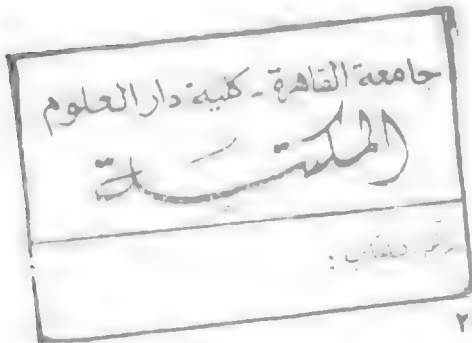 جامعة القاهرة - كلية دار العلوم
المكتبة
رقم :
٢